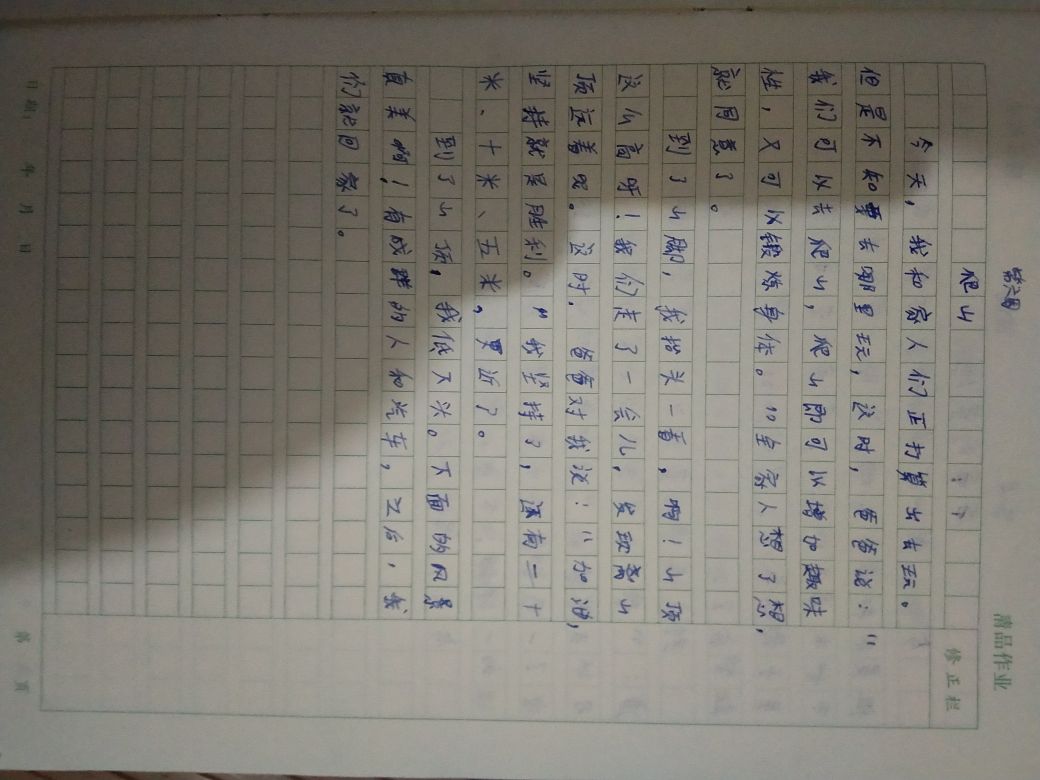 第六周
清品作业
爬山
修正栏
今天，我和家人们正打算出去玩。
但是不知要去哪里玩，这时，爸爸说：“
我们可以去爬山，爬山即可以增加趣味
性，又可以锻炼身体。”全家人想了想，
就同意了。
到了山脚，我抬头一看，啊！山顶
这么高呀！我们走了一会儿，发现离山
顶远着呢。这时，爸爸对我说：“加油，
坚持就是胜利。”我坚持了，还有二十
米、十米、五米，更近了。
到了山顶，我低下头。下面的风景
真美啊！有成群的人和汽车，之后，我
们就回家了。
日期： 年 月 日
第 页